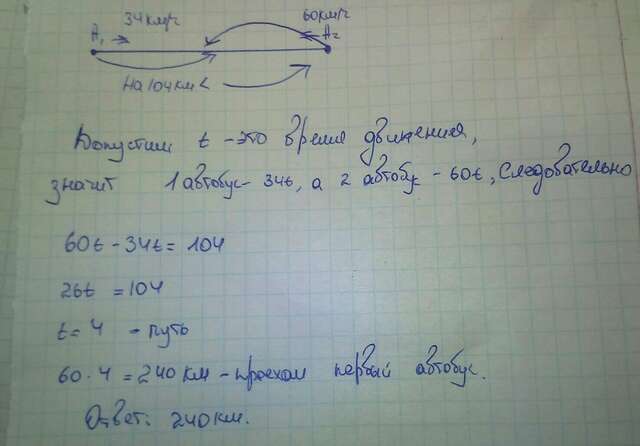 34км/ч 60км/ч
А₁ А₂
На 104 км <
Допустим t - это время движения,
значит 1 автобус - 34t, а 2 автобус - 60t, следовательно
60t - 34t = 104
26t = 104
t = 4 - путь
60 · 4 = 240 км - проехал первый автобус.
Ответ: 240 км.